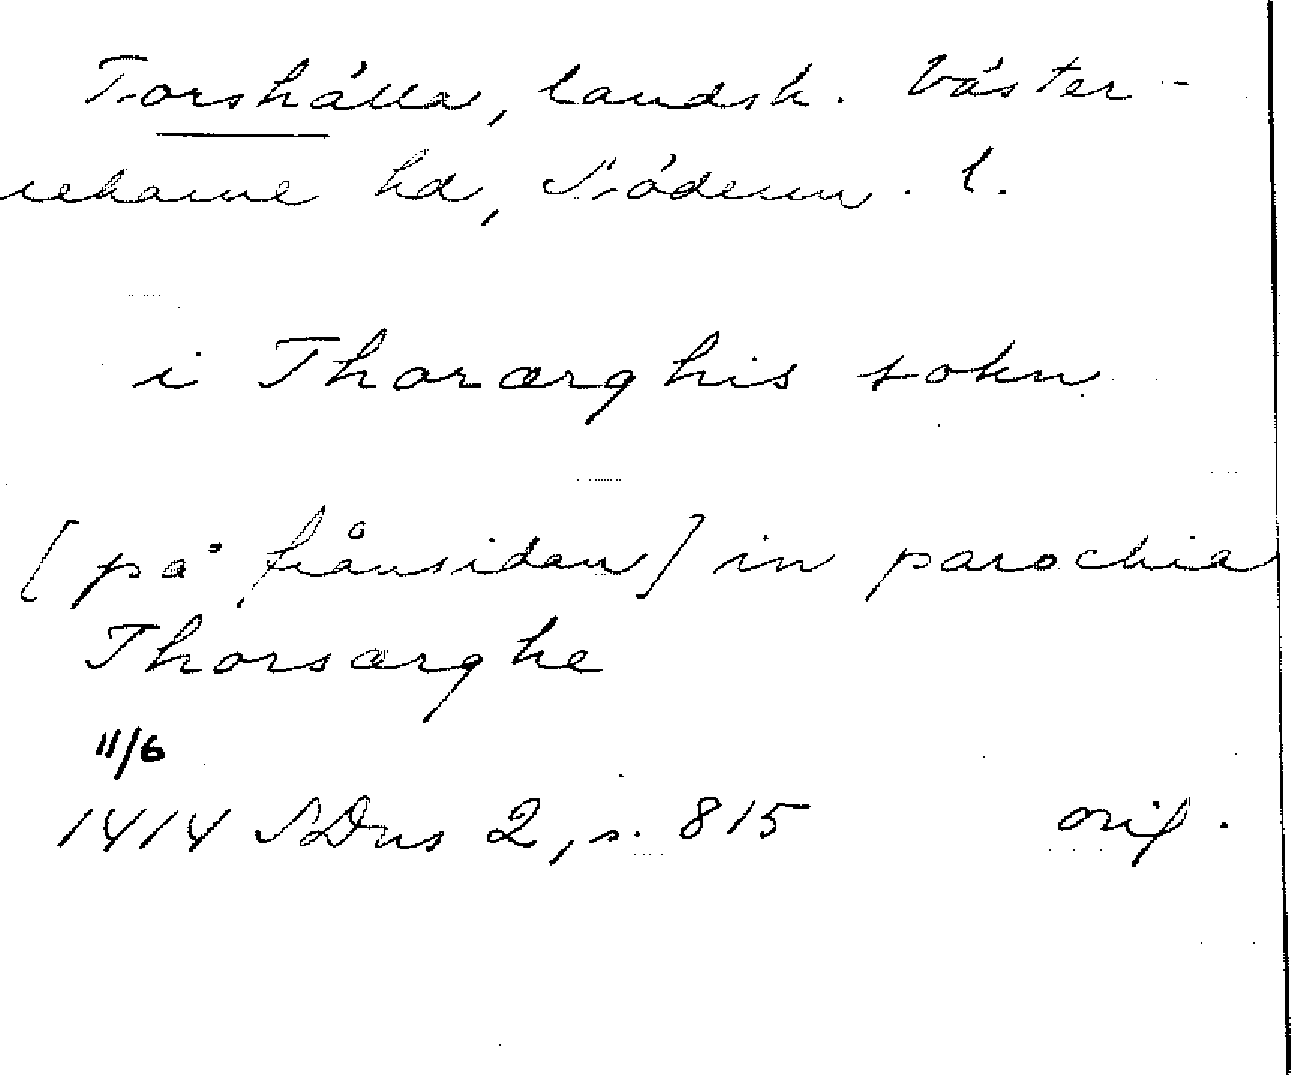 Torshälla, landsk. Väster-
rekarne hd, Söderm. l.
i Thorærghis sokn
[på frånsidan] in parochia
Thorsærghe
11/6
1414 SDns 2, s. 815 orig.